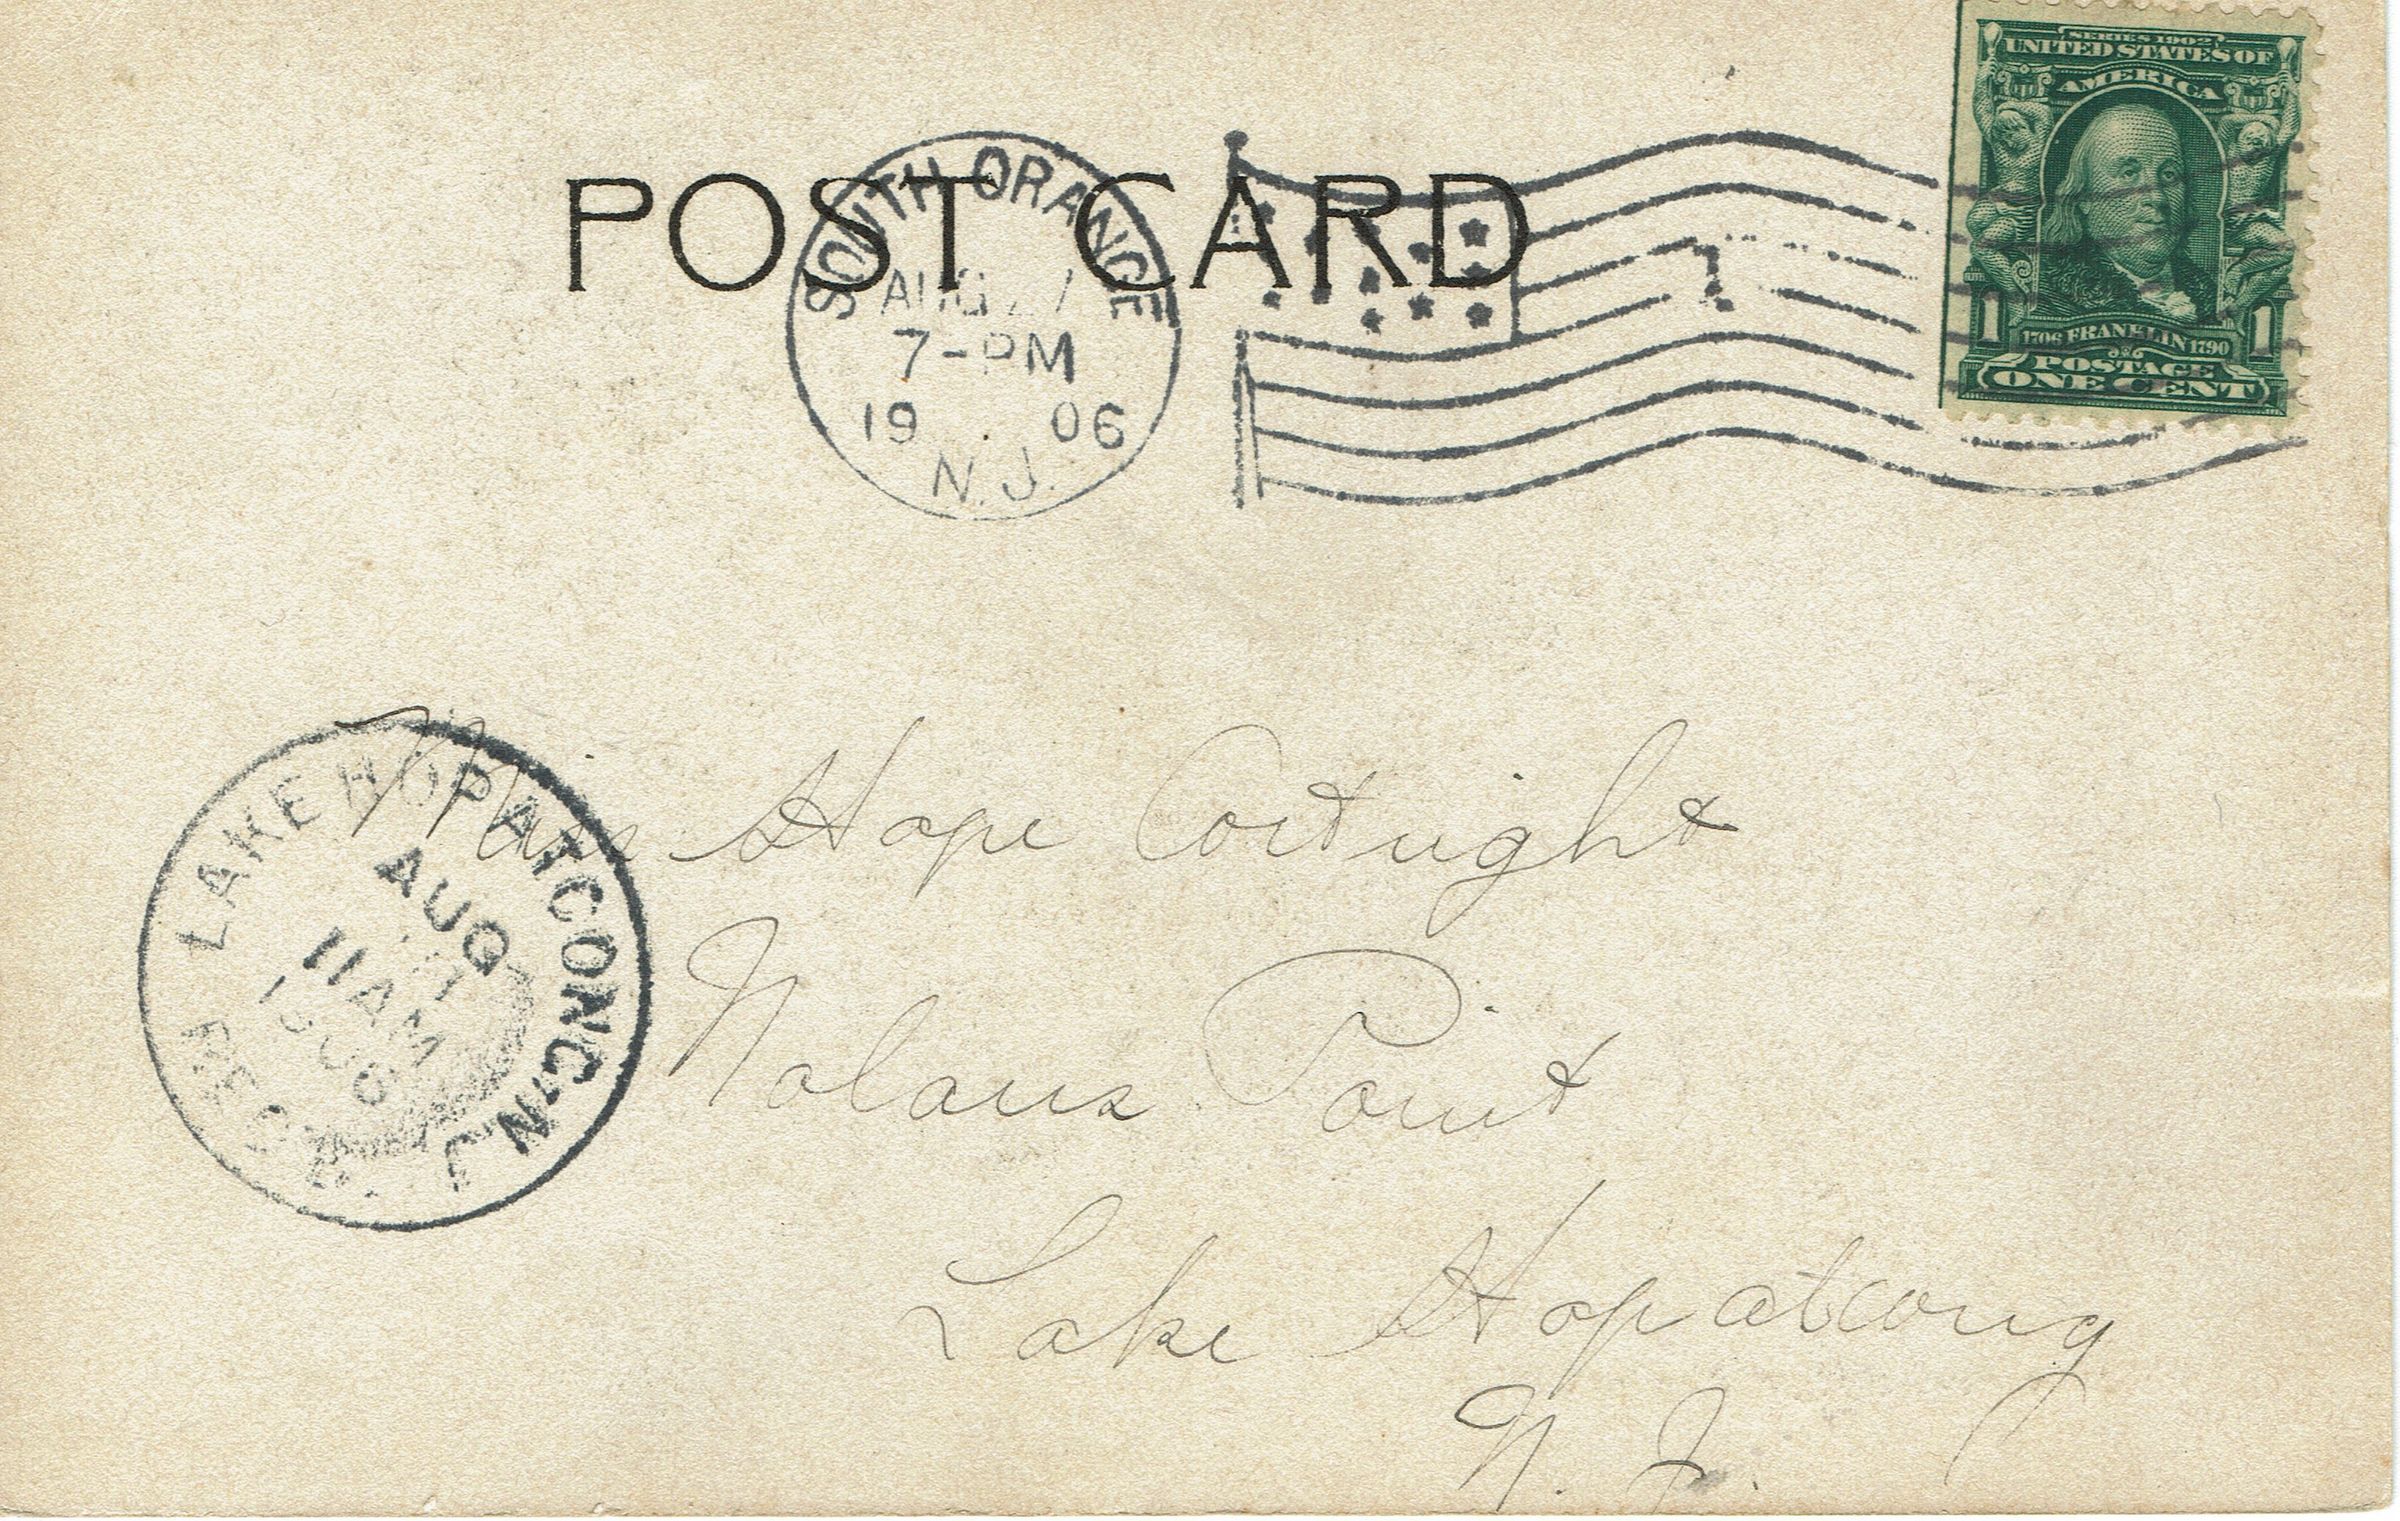 SERIES 1902
UNITED STATES OF
AMERICA
1706 FRANKLIN 1790
POSTAGE
1 ONE CENT 1
POST CARD
SOUTH ORANGE
AUG 27
7-PM
1906
N.J.
1
LAKE HOPATCONG, N.J.
AUG
11 AM
Miss Hope Cortright
Nolans Point
Lake Hopatcong
N. J.